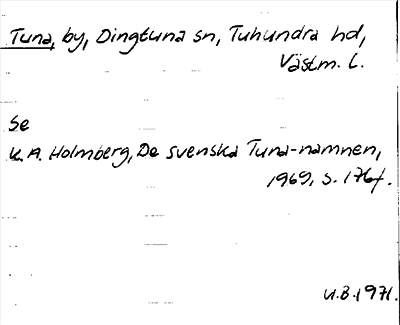 Tuna, by, Dingtuna sn, Tuhundra hd,
Västm. l.
Se
K. A. Holmberg, De svenska Tuna-namnen,
1969, s. 176f.
U.B. 1971.